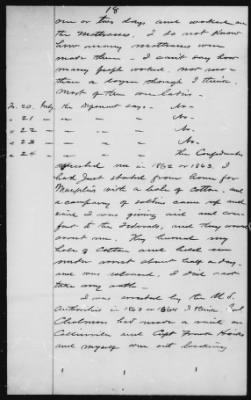 18
one or two days and worked on
the mattresses. I do not know
how many mattresses were
made there - I can't say how
many people worked, not more
than a dozen though I think.
Most of them were ladies.
In. 20. Intg. the deponent says. - No.
" 21 - " - " - No.
" 22 - " - " - No.
" 23 - " - " - No.
" 24 - " - " - The Confederates
arrested me in 1862 or 1863. I
had just started from home for
Memphis with a bale of cotton, and
a company of soldiers came up and
said I was giving aid and com-
fort to the Federals, and they would
arrest me. They burned my
bale of cotton and held me
under arrest about half a day,
and was released. I did not
take any oath.
I was arrested by the U.S.
Authorities in 1863 or 1864 I think. Gen
Chalmers had made a raid on
Collierville and Capt Frank
and myself were out looking